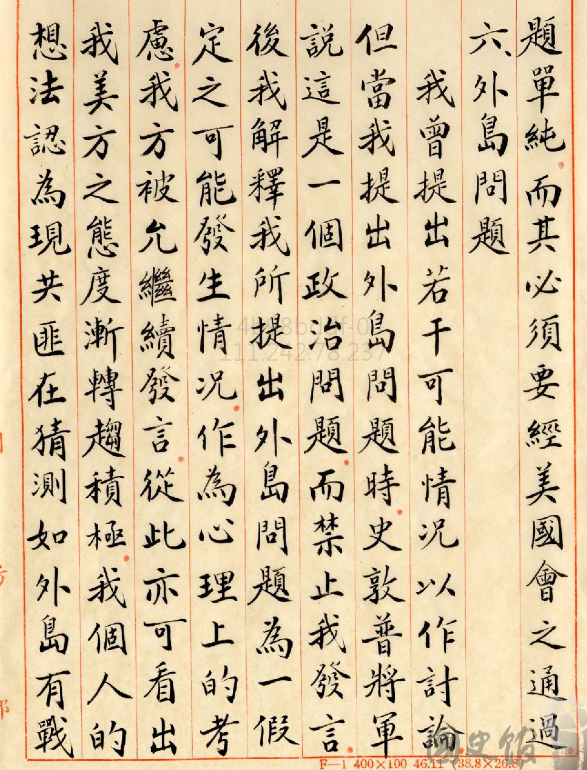 題單純而其必須要經美國會之通過
六、外島問題
我曾提出若干可能情況以作討論
但當我提出外島問題時史敦普將軍
說這是一個政治問題而禁止我發言
後我解釋我所提出外島問題為一假
定之可能發生情況作為心理上的考
慮我方被允繼續發言從此亦可看出
我美方之態度漸轉趨積極我個人的
想法認為現共匪在猜測如外島有戰
F—1 400×100 46.11 (38.8×26.8)
國史館
111.242.78.237